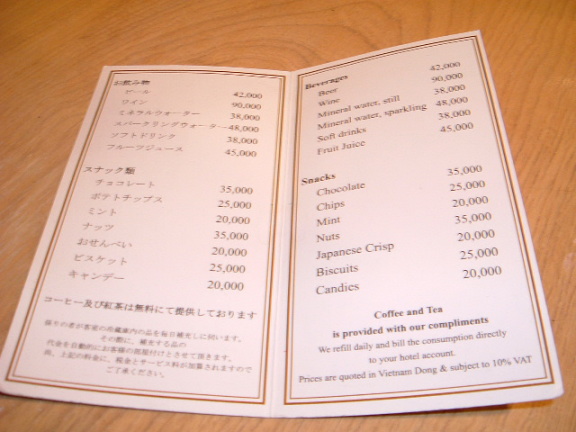 お飲み物
ビール 42,000
ワイン 90,000
ミネラルウォーター 38,000
スパークリングウォーター 48,000
ソフトドリンク 38,000
フルーツジュース 45,000
スナック類
チョコレート 35,000
ポテトチップス 25,000
ミント 20,000
ナッツ 35,000
おせんべい 20,000
ビスケット 25,000
キャンデー 20,000
コーヒー及び紅茶は無料にて提供しております
係りの者が客室の冷蔵庫内の品を毎日補充しに伺います。
その際に、補充する品の
代金を自動的にお客様の部屋付けとさせて頂きます。
尚、上記の料金に、税金とサービス料が加算されますので
ご了承ください。
Beverages
Beer 42,000
Wine 90,000
Mineral water, still 38,000
Mineral water, sparkling 48,000
Soft drinks 38,000
Fruit Juice 45,000
Snacks
Chocolate 35,000
Chips 25,000
Mint 20,000
Nuts 35,000
Japanese Crisp 20,000
Biscuits 25,000
Candies 20,000
Coffee and Tea
is provided with our compliments
We refill daily and bill the consumption directly
to your hotel account.
Prices are quoted in Vietnam Dong & subject to 10% VAT